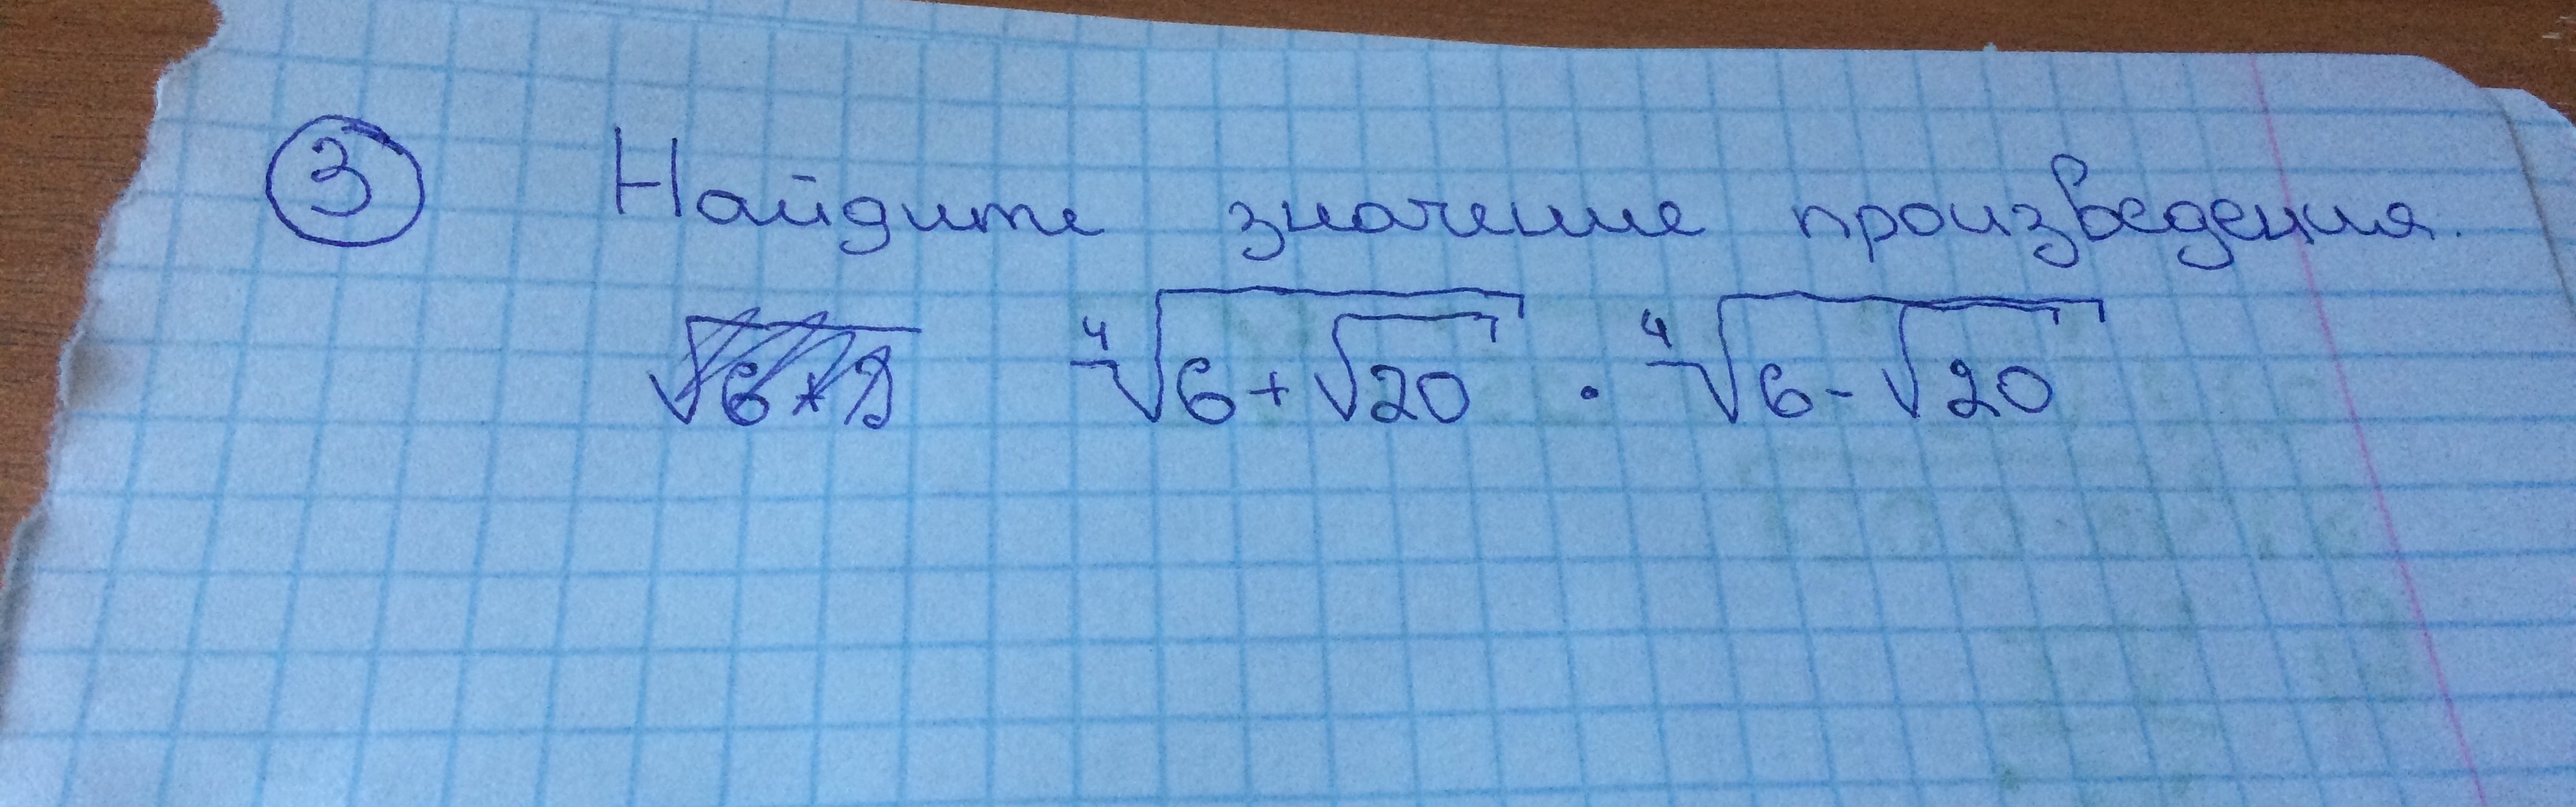 3 Найдите значение произведения.
⁴√(6+√20) · ⁴√(6-√20)